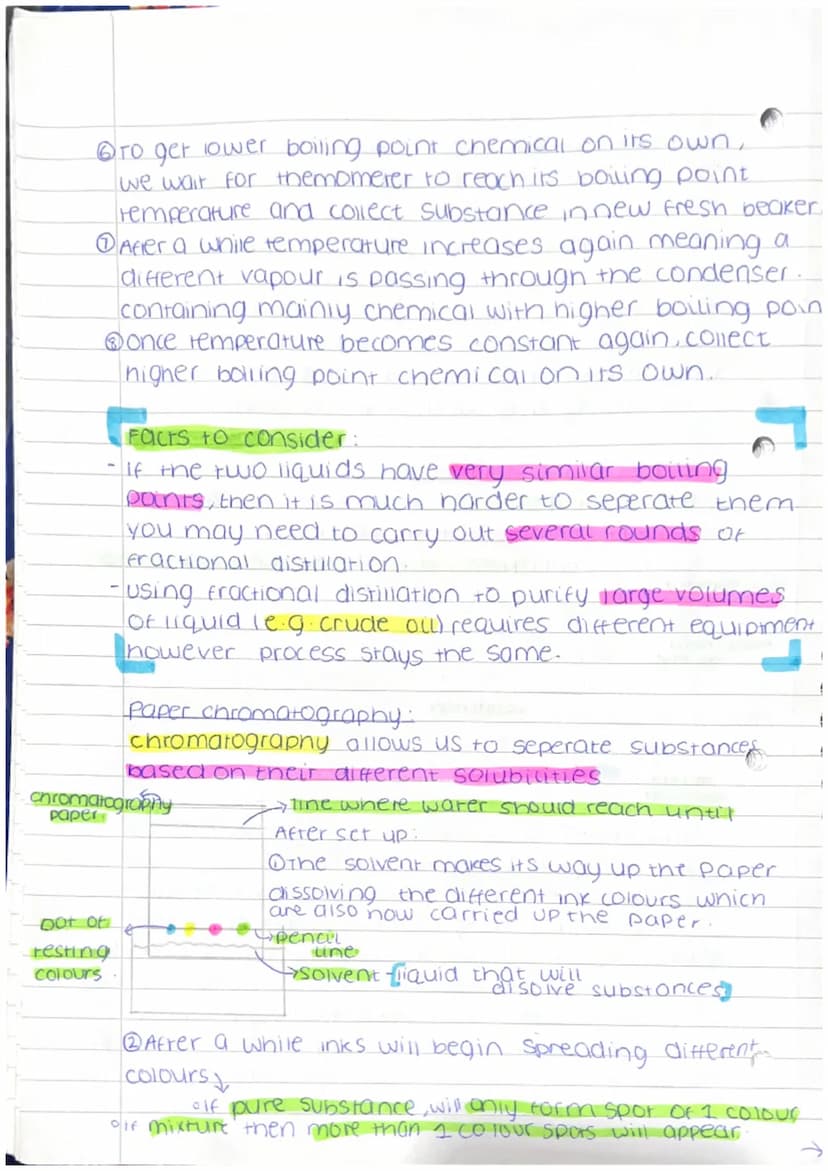 ⑥To get lower boiling point chemical on its own,
we wait for themometer to reach its boiling point
temperature and collect substance in new fresh beaker.
⑦ After a while temperature increases again meaning a
different vapour is passing through the condenser.
containing mainly chemical with higher boiling poin
⑧once temperature becomes constant again, collect
higher boiling point chemical on its own.
Facts to consider:
- If the two liquids have very similar boiling
points, then it is much harder to seperate them
you may need to carry out several rounds of
fractional distillation.
- using fractional distillation to purify large volumes
of liquid (e.g. crude oil) requires different equipment
however process stays the same.
Paper chromatography:
chromatography allows us to seperate substances
based on their different solubilities
chromatography
paper.
→ line where water should reach until
After set up:
①The solvent makes its way up the paper
dissolving the different ink colours which
are also now carried up the paper.
Dot of
testing
colours.
→pencil
line
→solvent-[liquid that will
disolve substances]
②After a while inks will begin spreading different
colours↓
◦if pure substance, will only form spot of 1 colour
◦if mixture then more than 1 colour spots will appear.
→